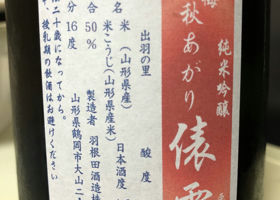 純米吟醸
秋あがり
俵雪
出羽の里
酸度
米(山形県産)
日本酒度
米こうじ(山形県産米)
合 50%
製造者 羽根田酒造
山形県鶴岡市大山二
二十歳になってから。
、授乳期の飲酒はお避けください